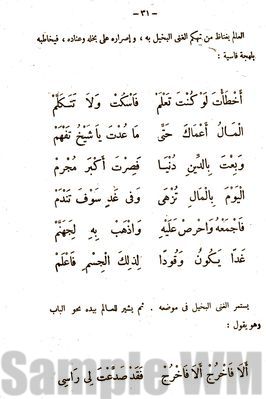 — ٣١ —
العالم يغتاظ من تهكم الغنى البخيل به ، وإصراره على بخله وعناده ، فيخاطبه
بلهجة قاسية :
أَخْطَأْتَ لَوْ كُنْتَ تَعْلَمْ فَاسْكُتْ وَلَا تَتَكَلَّمْ
الْمَالُ أَعْمَاكَ حَتَّى مَا عُدْتَ يَا شَيْخُ تَفْهَمْ
وَبِعْتَ بِالدِّينِ دُنْيَا فَصِرْتَ أَكْبَرَ مُجْرِمْ
الْيَوْمَ بِالْمَالِ تُزْهَى وَفِى غَدٍ سَوْفَ تَنْدَمْ
فَاجْمَعْهُ وَاحْرِصْ عَلَيْهِ وَاذْهَبْ بِهِ لِجَهَنَّمْ
غَدًا يَكُونُ وَقُودًا لِذَلِكَ الْجِسْمِ فَاعْلَمْ
يستمر الغنى البخيل فى موضعه . ثم يشير للعالم بيده نحو الباب
وهو يقول :
أَلَا فَاخْرُجْ أَلَا فَاخْرُجْ فَقَدْ صَدَّعْتَ لِى رَاسِى
Sample WM